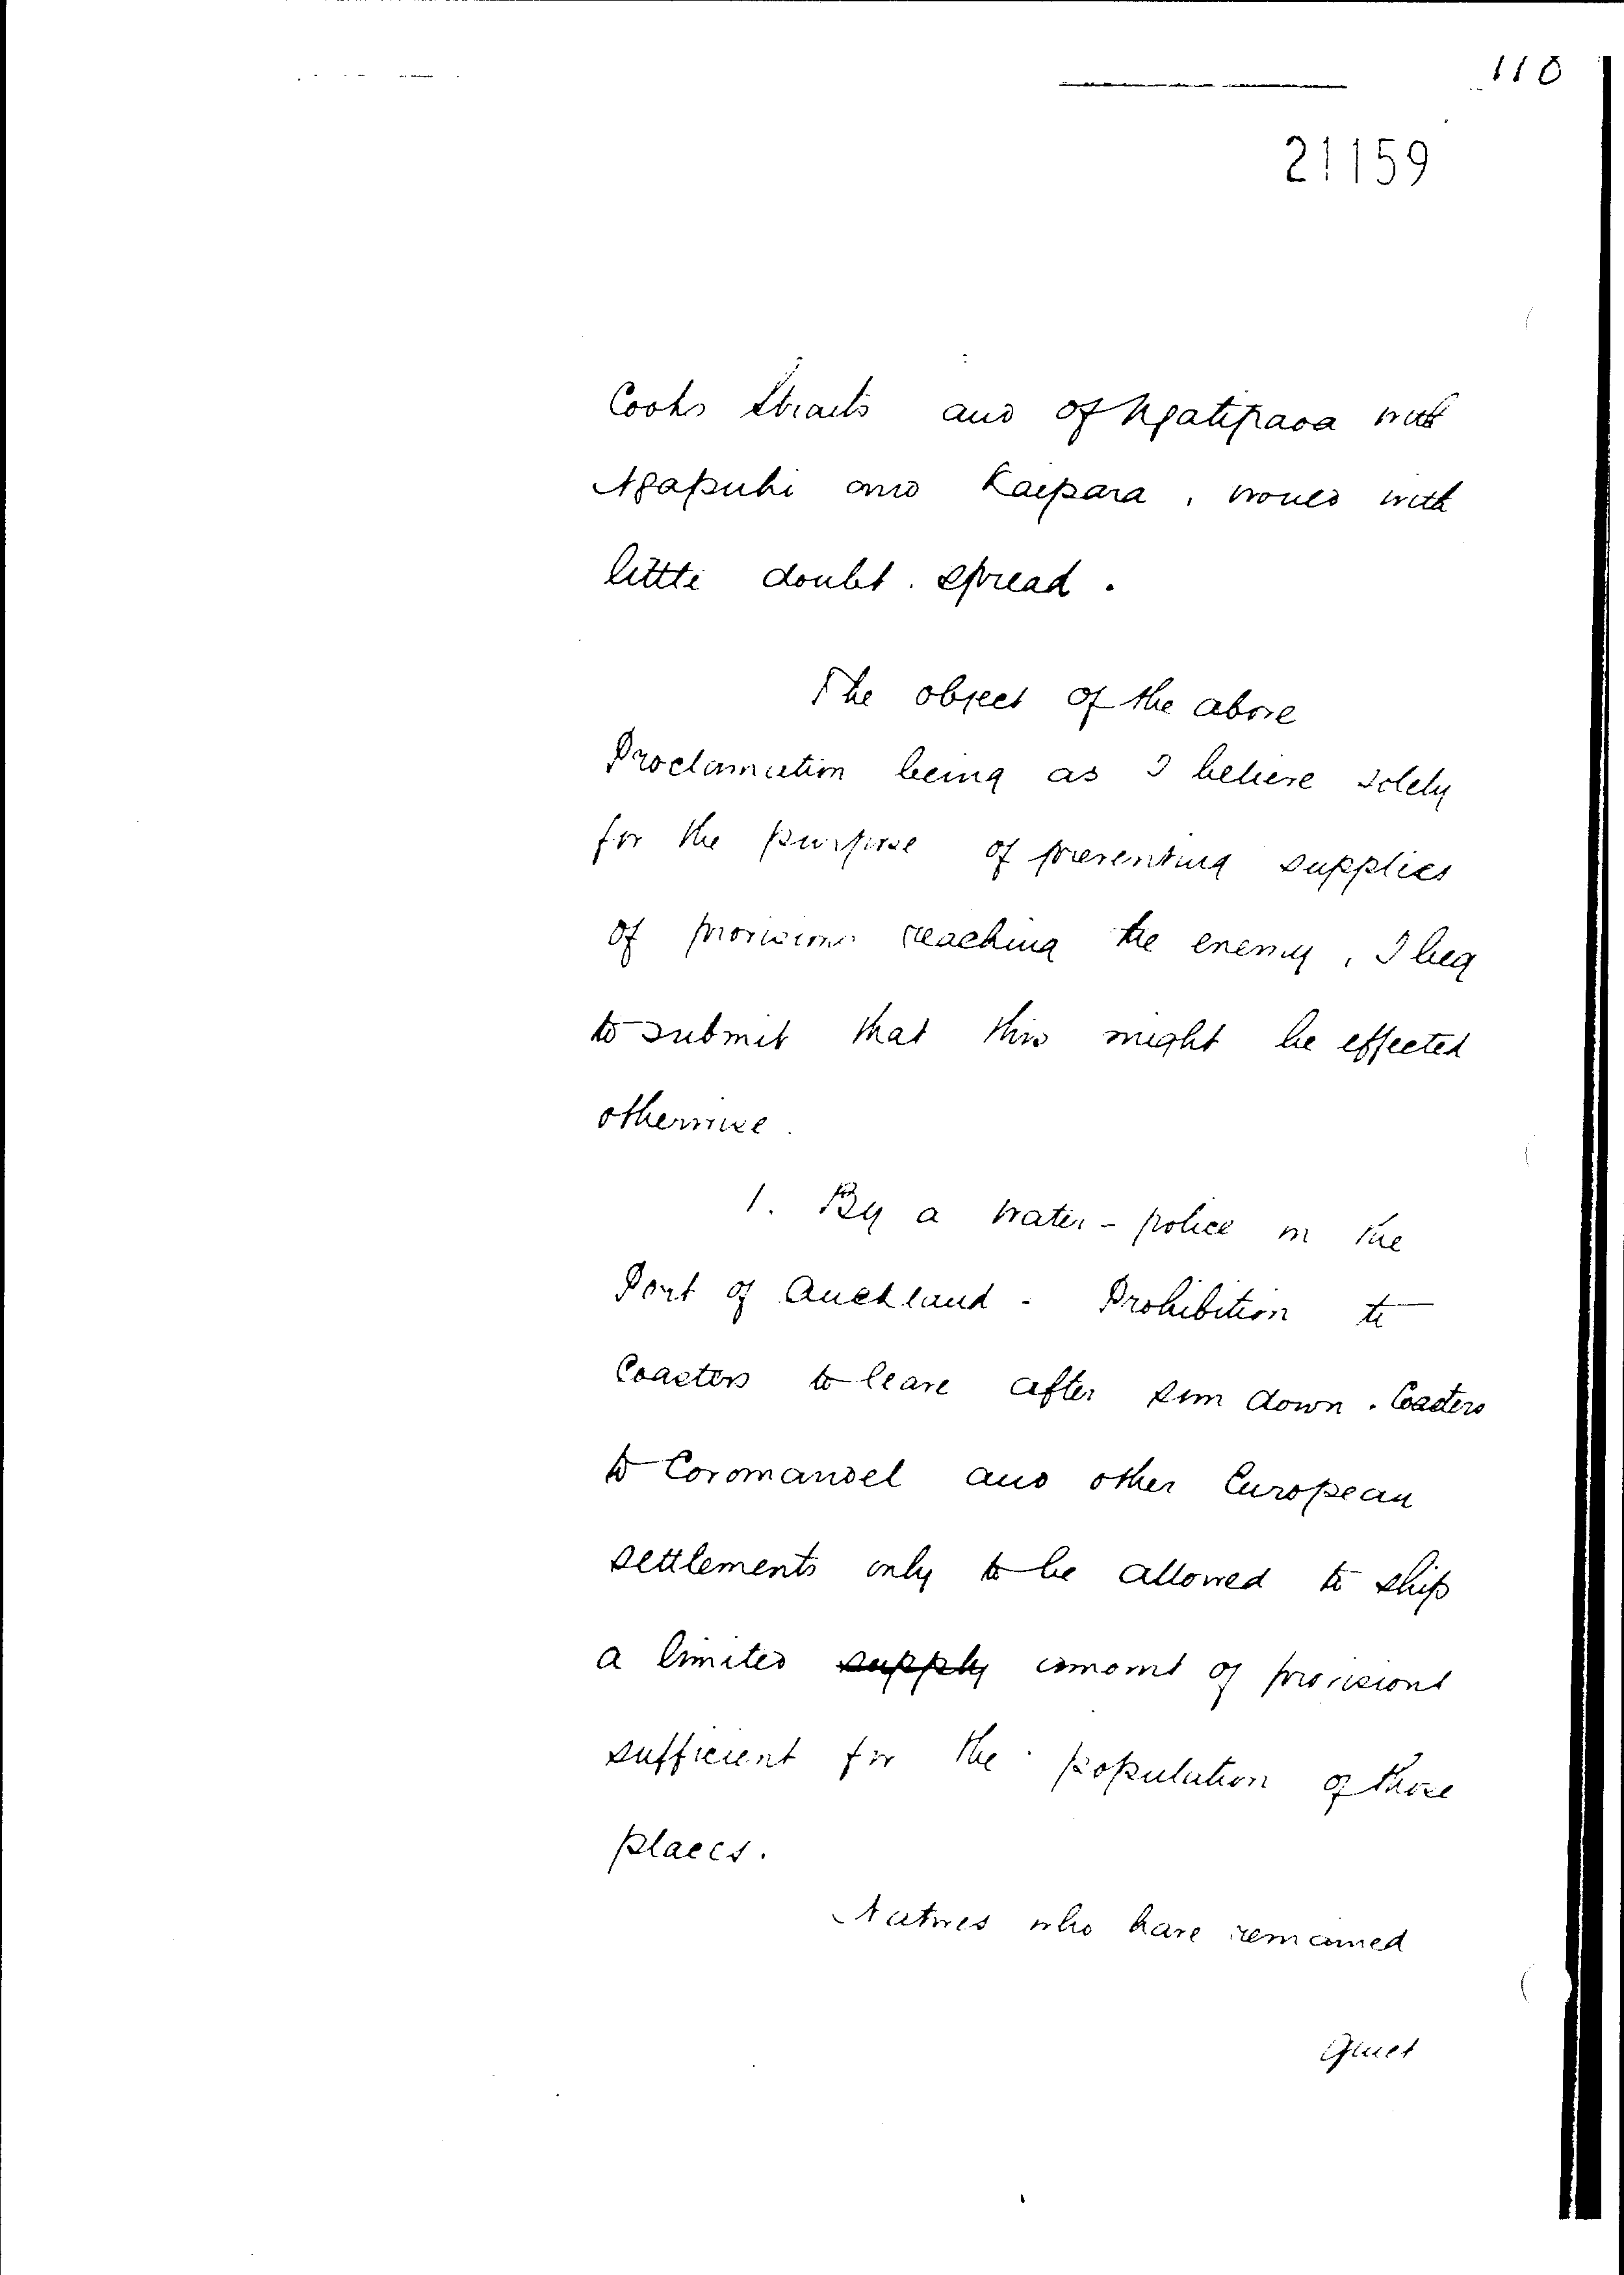 110
21159
Cooks Straits and of Ngatipaoa with
Ngapuhi and Kaipara, would with
little doubt. spread.
The object of the above
Proclamation being as I believe solely
for the purpose of preventing supplies
of provisions reaching the enemy, I beg
to submit that this might be effected
otherwise.
1. By a water-police in the
Port of Auckland - Prohibition to
Coasters to leave after sun down. Coasters
to Coromandel and other European
settlements only to be allowed to ship
a limited supply amount of provisions
sufficient for the population of those
places.
Natives who have remained
quiet